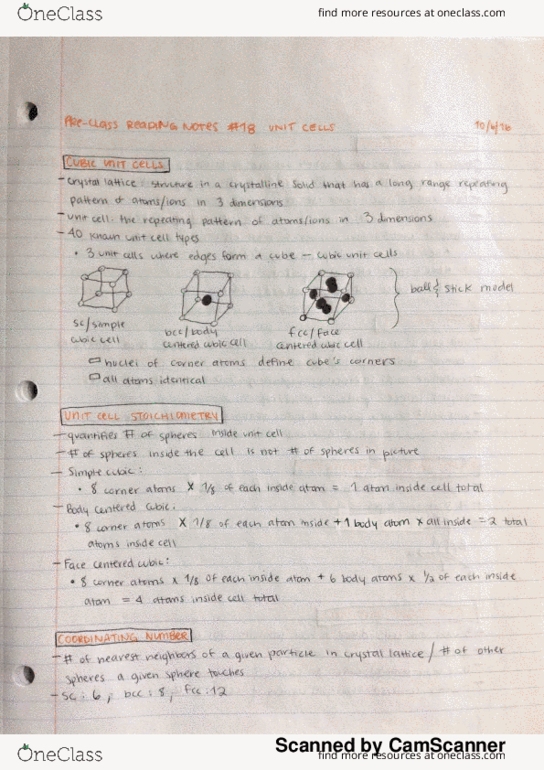 OneClass
find more resources at oneclass.com
PRE-CLASS READING NOTES #18 UNIT CELLS
10/6/16
CUBIC UNIT CELLS
- crystal lattice: structure in a crystalline solid that has a long range repeating
pattern of atoms/ions in 3 dimensions
- unit cell: the repeating pattern of atoms/ions in 3 dimensions
- 40 known unit cell types
• 3 unit cells where edges form a cube - cubic unit cells
ball & stick model
sc/simple
cubic cell
bcc/body
centered cubic cell
fcc/face
centered cubic cell
nuclei of corner atoms define cube's corners
all atoms identical
UNIT CELL STOICHIOMETRY
- quantifies # of spheres inside unit cell
- # of spheres inside the cell is not # of spheres in picture
- Simple cubic:
• 8 corner atoms x 1/8 of each inside atom = 1 atom inside cell total
- Body centered cubic:
• 8 corner atoms x 1/8 of each atom inside + 1 body atom x all inside = 2 total
atoms inside cell
- Face centered cubic:
• 8 corner atoms x 1/8 of each inside atom + 6 body atoms x 1/2 of each inside
atom = 4 atoms inside cell total
COORDINATING NUMBER
- # of nearest neighbors of a given particle in crystal lattice / # of other
spheres a given sphere touches
- sc: 6, bcc: 8, fcc: 12
Scanned by CamScanner
OneClass
find more resources at oneclass.com